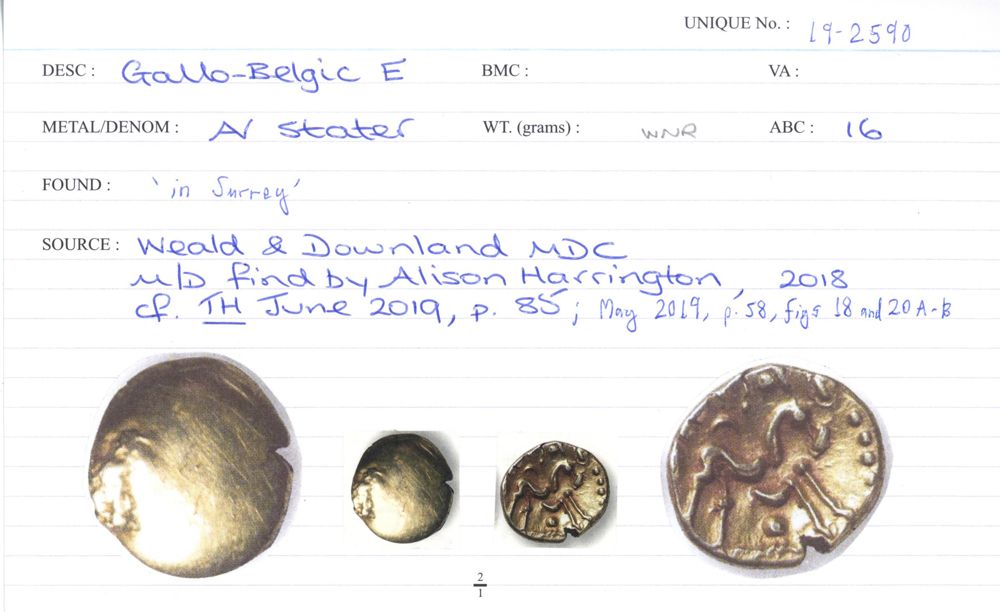 UNIQUE No. : 19-2590
DESC : Gallo-Belgic E BMC : VA :
METAL/DENOM : AV stater WT. (grams) : WNR ABC : 16
FOUND : 'in Surrey'
SOURCE : Weald & Downland MDC
M/D find by Alison Harrington, 2018
cf. TH June 2019, p. 85; May 2019, p. 58, figs 18 and 20A-B
2
1